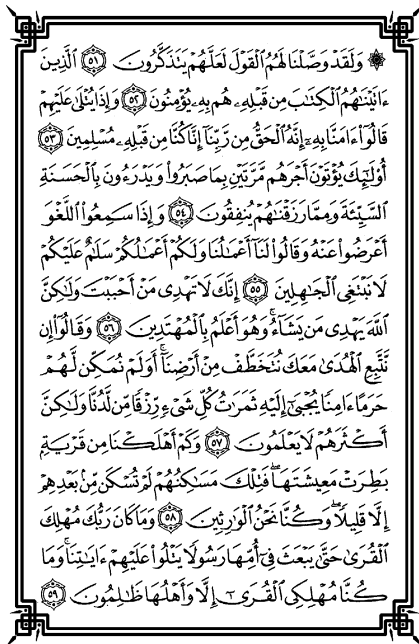 ۞ وَلَقَدْ وَصَّلْنَا لَهُمُ الْقَوْلَ لَعَلَّهُمْ يَتَذَكَّرُونَ ﴿٥١﴾ الَّذِينَ
ءَاتَيْنَاهُمُ الْكِتَابَ مِن قَبْلِهِ هُم بِهِ يُؤْمِنُونَ ﴿٥٢﴾ وَإِذَا يُتْلَىٰ عَلَيْهِمْ
قَالُوا ءَامَنَّا بِهِ إِنَّهُ الْحَقُّ مِن رَّبِّنَا إِنَّا كُنَّا مِن قَبْلِهِ مُسْلِمِينَ ﴿٥٣﴾
أُولَٰئِكَ يُؤْتَوْنَ أَجْرَهُم مَّرَّتَيْنِ بِمَا صَبَرُوا وَيَدْرَءُونَ بِالْحَسَنَةِ
السَّيِّئَةَ وَمِمَّا رَزَقْنَاهُمْ يُنفِقُونَ ﴿٥٤﴾ وَإِذَا سَمِعُوا اللَّغْوَ
أَعْرَضُوا عَنْهُ وَقَالُوا لَنَا أَعْمَالُنَا وَلَكُمْ أَعْمَالُكُمْ سَلَامٌ عَلَيْكُمْ
لَا نَبْتَغِي الْجَاهِلِينَ ﴿٥٥﴾ إِنَّكَ لَا تَهْدِي مَنْ أَحْبَبْتَ وَلَٰكِنَّ
اللَّهَ يَهْدِي مَن يَشَاءُ وَهُوَ أَعْلَمُ بِالْمُهْتَدِينَ ﴿٥٦﴾ وَقَالُوا إِن
نَّتَّبِعِ الْهُدَىٰ مَعَكَ نُتَخَطَّفْ مِنْ أَرْضِنَا أَوَلَمْ نُمَكِّن لَّهُمْ
حَرَمًا ءَامِنًا يُجْبَىٰ إِلَيْهِ ثَمَرَاتُ كُلِّ شَيْءٍ رِّزْقًا مِّن لَّدُنَّا وَلَٰكِنَّ
أَكْثَرَهُمْ لَا يَعْلَمُونَ ﴿٥٧﴾ وَكَمْ أَهْلَكْنَا مِن قَرْيَةٍ
بَطِرَتْ مَعِيشَتَهَا فَتِلْكَ مَسَاكِنُهُمْ لَمْ تُسْكَن مِّن بَعْدِهِمْ
إِلَّا قَلِيلًا وَكُنَّا نَحْنُ الْوَارِثِينَ ﴿٥٨﴾ وَمَا كَانَ رَبُّكَ مُهْلِكَ
الْقُرَىٰ حَتَّىٰ يَبْعَثَ فِي أُمِّهَا رَسُولًا يَتْلُوا عَلَيْهِمْ ءَايَاتِنَا وَمَا
كُنَّا مُهْلِكِي الْقُرَىٰ إِلَّا وَأَهْلُهَا ظَالِمُونَ ﴿٥٩﴾